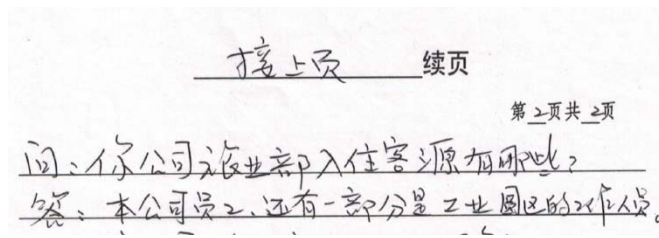 接上页 续页
第2页共2页
问：你公司旅业部入住客源有哪些？
答：本公司员工、还有一部分是工业园区的工作人员。